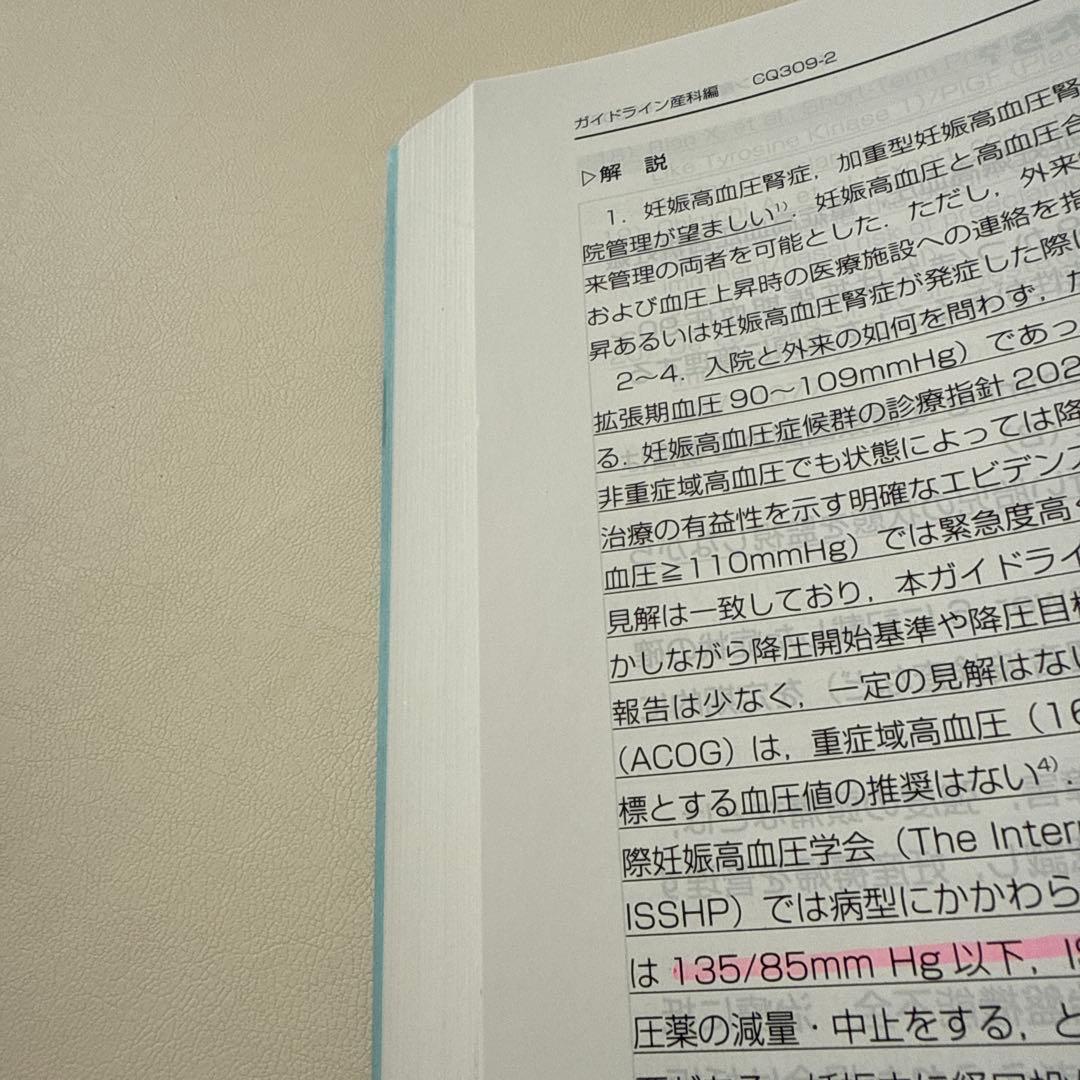 ガイドライン産科編 CQ309-2
▷解 説
1. 妊娠高血圧腎症，加重型妊娠高血圧腎
院管理が望ましい1)．妊娠高血圧と高血圧合
来管理の両者を可能とした．ただし，外来
および血圧上昇時の医療施設への連絡を指
昇あるいは妊娠高血圧腎症が発症した際に
2〜4. 入院と外来の如何を問わず，
拡張期血圧 90〜109mmHg）であっ
る．妊娠高血圧症候群の診療指針 202
非重症域高血圧でも状態によっては降
治療の有益性を示す明確なエビデンス
血圧≧110mmHg）では緊急度高く
見解は一致しており，本ガイドライ
かしながら降圧開始基準や降圧目標
報告は少なく，一定の見解はない
(ACOG）は，重症域高血圧（16
標とする血圧値の推奨はない4)．
際妊娠高血圧学会（The Intern
ISSHP）では病型にかかわら
は 135/85mm Hg 以下，IS
圧薬の減量・中止をする，と